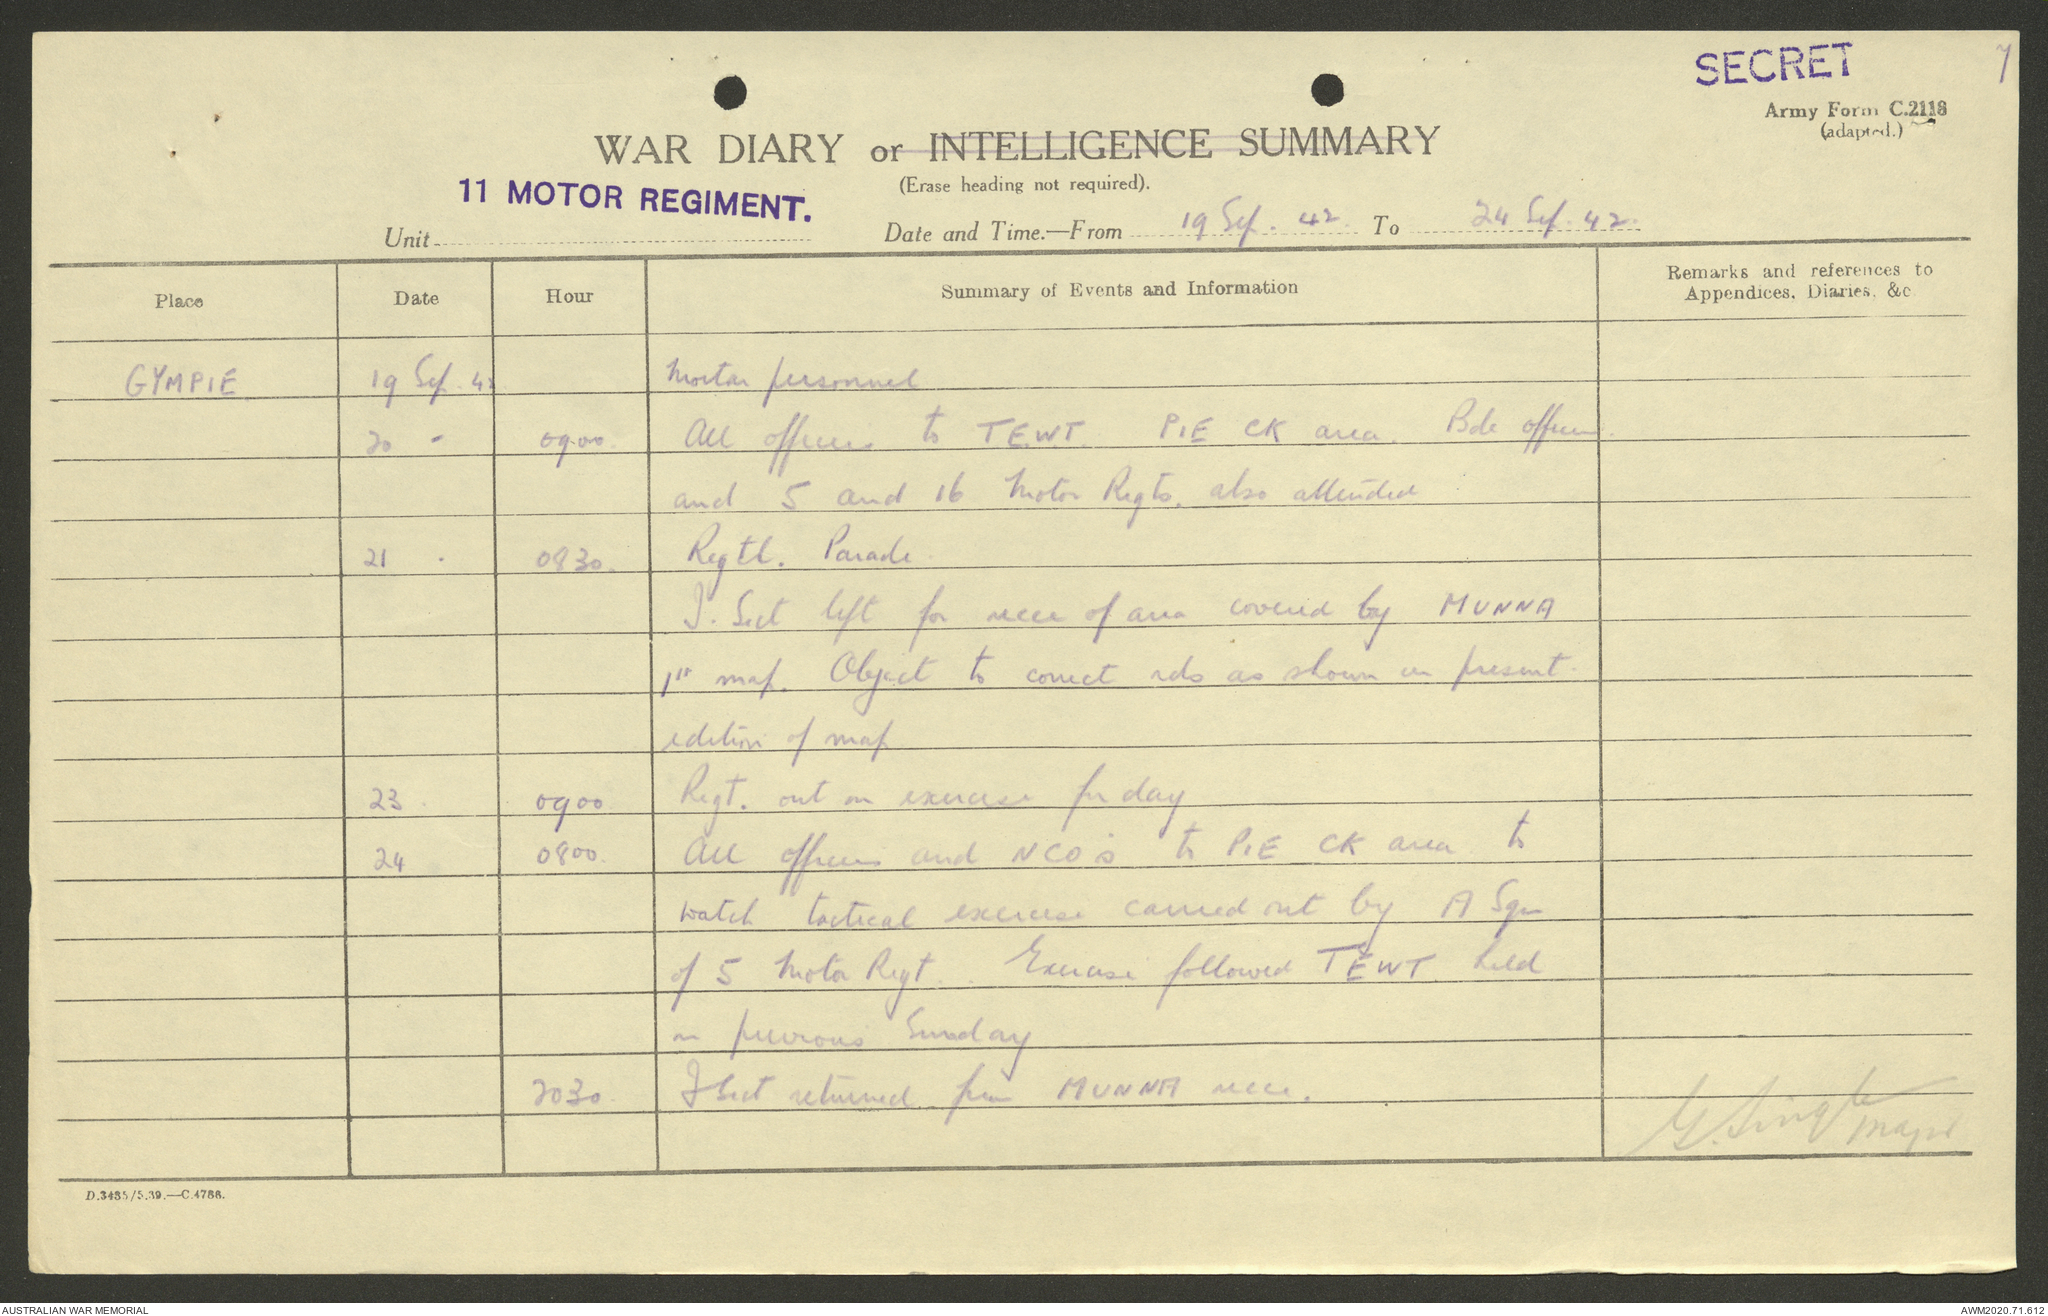 SECRET
7
Army Form C.2118
(adapted.)
WAR DIARY or INTELLIGENCE SUMMARY
(Erase heading not required).
11 MOTOR REGIMENT.
Unit
Date and Time.—From 19 Sep. 42. To 24 Sep. 42.
Place
Date
Hour
Summary of Events and Information
Remarks and references to
Appendices, Diaries, &c.
GYMPIE 19 Sep. 42 Mortar personnel
20 " 0900. All officers to TEWT. PIE CK area. Bde officers.
and 5 and 16 Motor Regts. also attended
21 " 0830. Regtl. Parade.
I. Sect left for recce of area covered by MUNNA
1" map. Object to correct rds as shown on present
edition of map
23 0900 Regt. out on exercise for day
24 0800. All officers and NCO's to PIE CK area to
watch tactical exercise carried out by A Sqn
of 5 Motor Regt. Exercise followed TEWT held
on previous Sunday
2030. I Sect returned from MUNNA recce.
Major
D.3485/5.39.—C.4788.
AUSTRALIAN WAR MEMORIAL
AWM2020.71.612